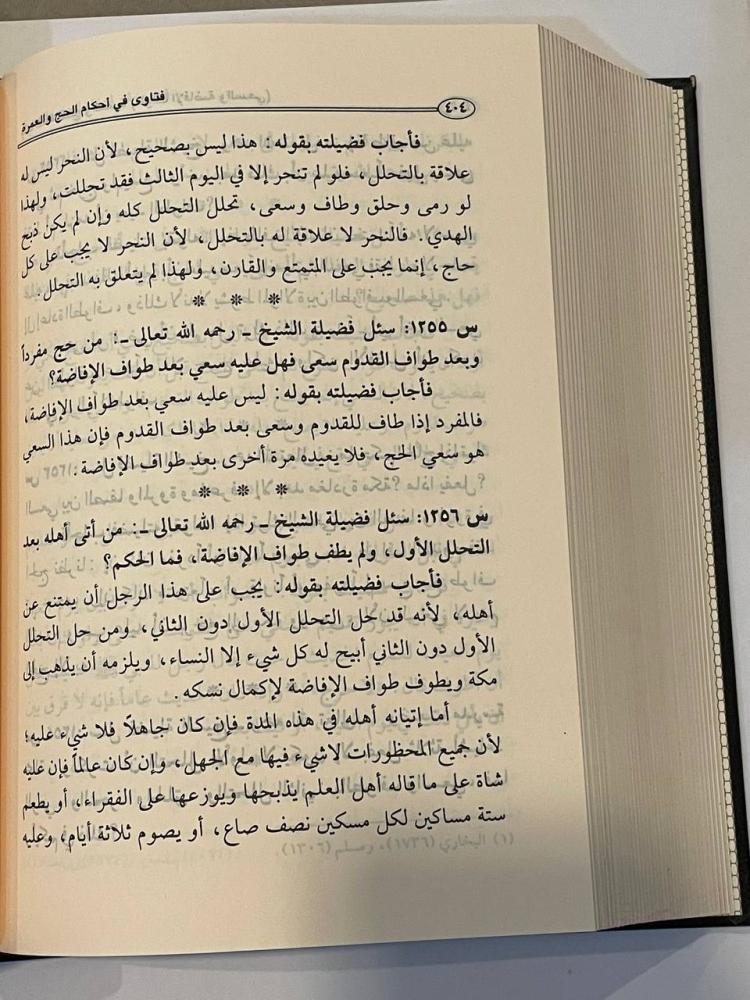 ٤٠٤ فتاوى في أحكام الحج والعمرة
فأجاب فضيلته بقوله: هذا ليس بصحيح، لأن النحر ليس له
علاقة بالتحلل، فلو لم تنحر إلا في اليوم الثالث فقد تحللت، ولهذا
لو رمى وحلق وطاف وسعى، تحلل التحلل كله وإن لم يكن ذبح
الهدي. فالنحر لا علاقة له بالتحلل، لأن النحر لا يجب على كل
حاج، إنما يجب على المتمتع والقارن، ولهذا لم يتعلق به التحلل.
* * *
س ١٢٥٥: سئل فضيلة الشيخ ـ رحمه الله تعالى ـ: من حج مفرداً
وبعد طواف القدوم سعى فهل عليه سعي بعد طواف الإفاضة؟
فأجاب فضيلته بقوله: ليس عليه سعي بعد طواف الإفاضة،
فالمفرد إذا طاف للقدوم وسعى بعد طواف القدوم فإن هذا السعي
هو سعي الحج، فلا يعيده مرة أخرى بعد طواف الإفاضة.
* * *
س ١٢٥٦: سئل فضيلة الشيخ ـ رحمه الله تعالى ـ: من أتى أهله بعد
التحلل الأول، ولم يطف طواف الإفاضة، فما الحكم؟
فأجاب فضيلته بقوله: يجب على هذا الرجل أن يمتنع عن
أهله، لأنه قد حل التحلل الأول دون الثاني، ومن حل التحلل
الأول دون الثاني أبيح له كل شيء إلا النساء، ويلزمه أن يذهب إلى
مكة ويطوف طواف الإفاضة لإكمال نسكه.
أما إتيانه أهله في هذه المدة فإن كان جاهلاً فلا شيء عليه؛
لأن جميع المحظورات لاشيء فيها مع الجهل، وإن كان عالماً فإن عليه
شاة على ما قاله أهل العلم يذبحها ويوزعها على الفقراء، أو يطعم
ستة مساكين لكل مسكين نصف صاع، أو يصوم ثلاثة أيام، وعليه